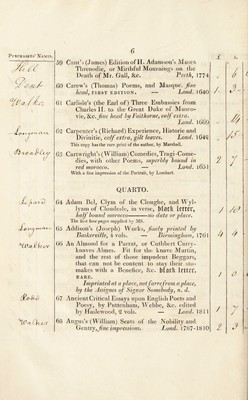 6
PURCHASERS' NAMES.
£ s.
59 Cant's (James) Edition of H. Adamson's Muses
Threnodie, or Mirthful Mournings on the
Death of Mr. Gall, &c. Perth, 1774
6
60 Carew's (Thomas) Poems, and Masque. fine
head, FIRST EDITION. — Lond. 1640
1 3
Walker
61 Carlisle's (the Earl of) Three Embassies from
Charles II. to the Great Duke of Musco-
vie, &c. fine head by Faithorne, calf extra.
Lond. 1669
14
Longman
62 Carpenter's (Richard) Experience, Historic and
Divinitie, calf extra, gilt leaves. Lond. 1642
This copy has the rare print of the author, by Marshall.
15
Broadley
63 Cartwright's (William) Comedies, Tragi-Come-
dies, with other Poems, superbly bound in
red morocco. — Lond. 1651
With a fine impression of the Portrait, by Lombart.
2 7
QUARTO.
64 Adam Bel, Clym of the Cloughe, and Wyl-
lyam of Cloudesle, in verse, black letter,
half bound morocco — no date or place.
The first four pages supplied by MS.
1 10
Longman
65 Addison's (Joseph) Works, finely printed by
Baskerville, 4 vols. — Birmingham, 1761
4 4
Walker
66 An Almond for a Parrat, or Cuthbert Curry-
knaves Almes. Fit for the knave Martin,
and the rest of those impudent Beggars,
that can not be content to stay their sto-
makes with a Benefice, &c. black letter,
RARE.
Imprinted at a place, not farre from a place,
by the Assignes of Signor Somebody, n. d.
1 0
67 Ancient Critical Essays upon English Poets and
Poesy, by Puttenham, Webbe, &c. edited
by Haslewood, 2 vols. — Lond. 1811
1 7
Walker
68 Angus's (William) Seats of the Nobility and
Gentry, fine impressions. Lond. 1787-1810
2 3